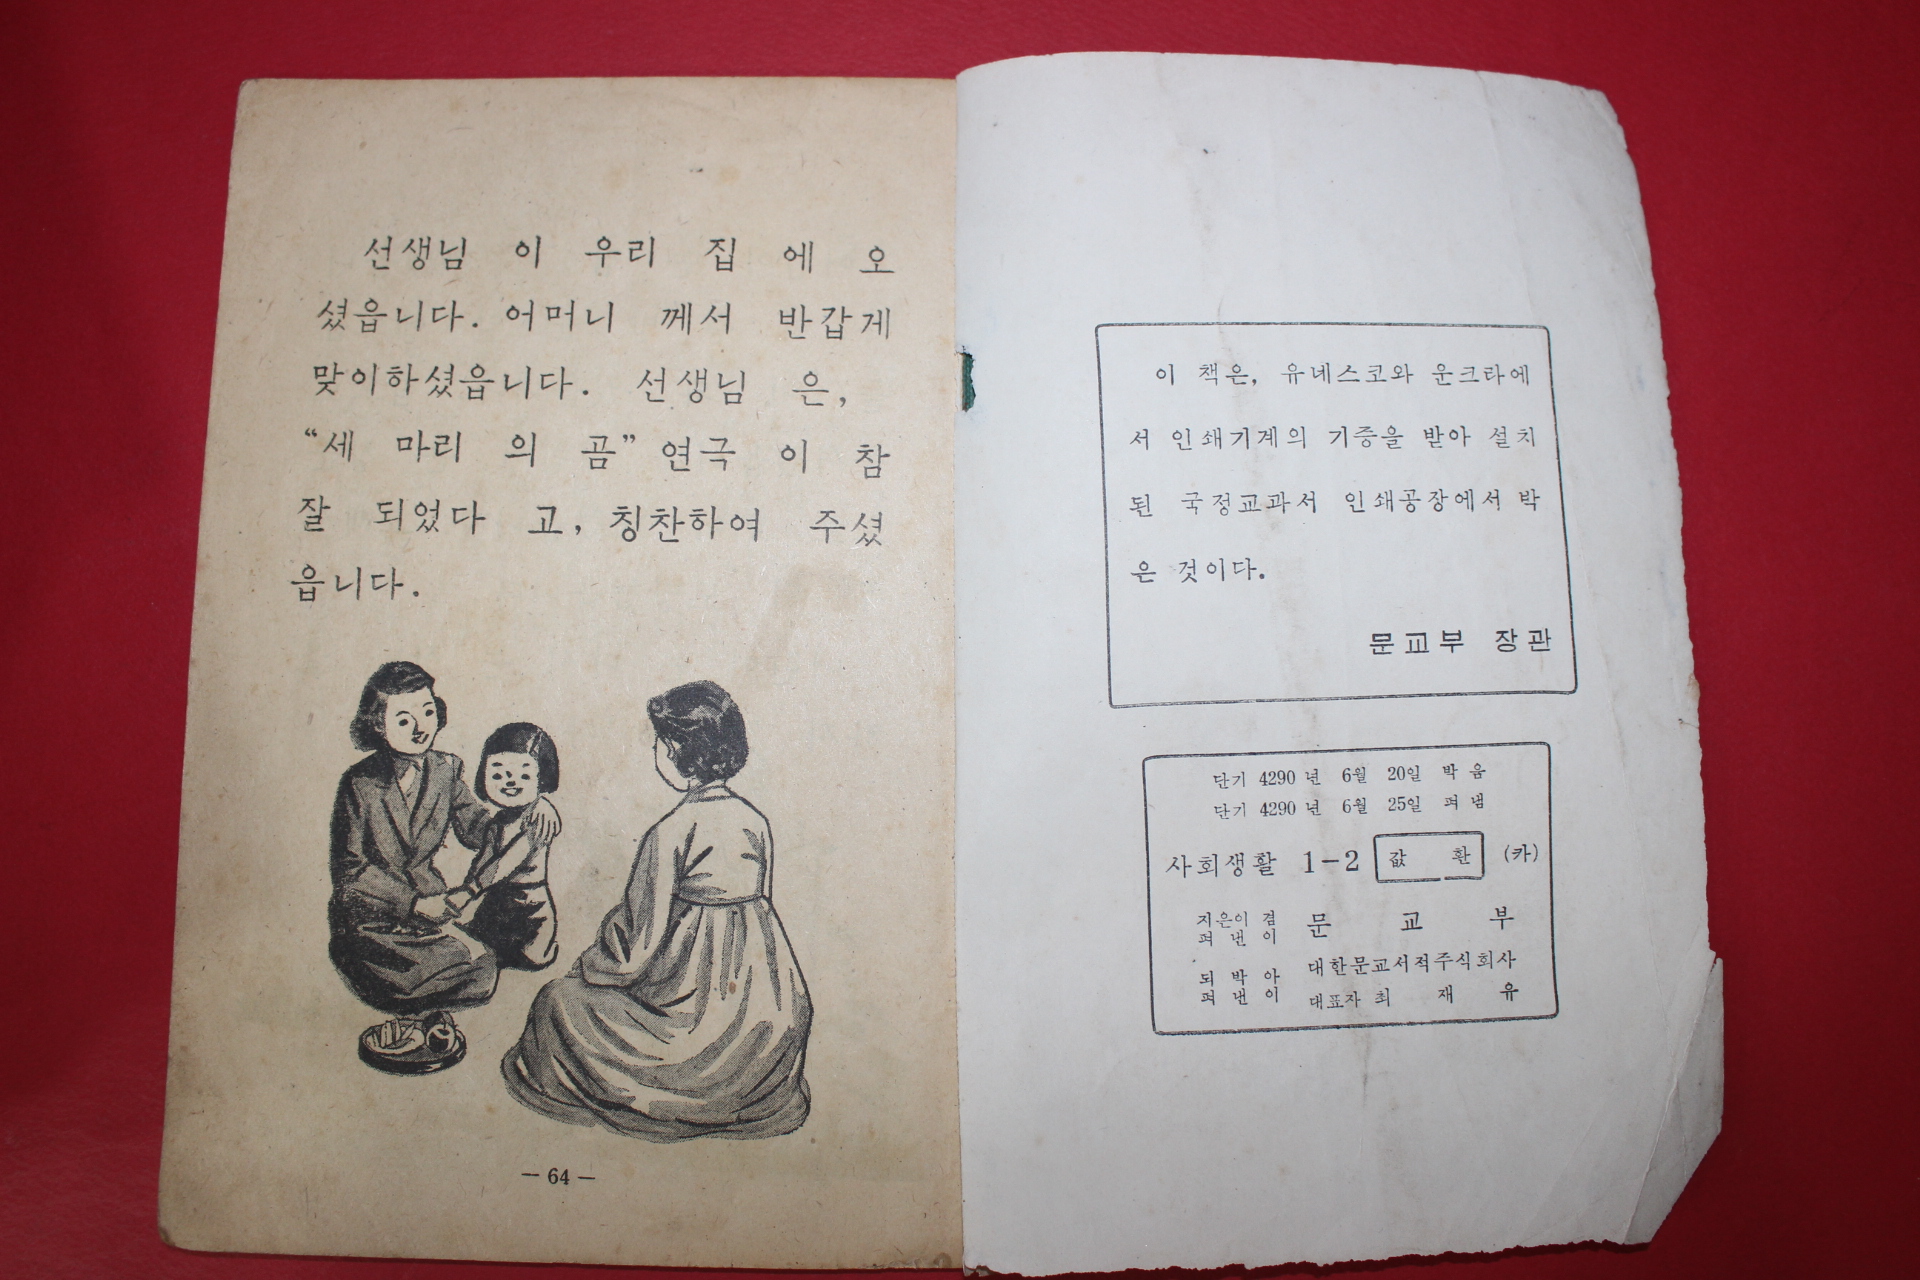 선생님 이 우리 집 에 오
셨읍니다. 어머니 께서 반갑게
맞이하셨읍니다. 선생님 은,
“세 마리 의 곰” 연극 이 참
잘 되었다 고, 칭찬하여 주셨
읍니다.
— 64 —
이 책은, 유네스코와 운크라에
서 인쇄기계의 기증을 받아 설치
된 국정교과서 인쇄공장에서 박
은 것이다.
문교부 장관
단기 4290 년 6월 20일 박음
단기 4290 년 6월 25일 펴냄
사회생활 1-2 값 환 (카)
지은이 겸
펴 낸 이 문 교 부
되 박 아
펴 낸 이
대한문교서적주식회사
대표자 최 재 유